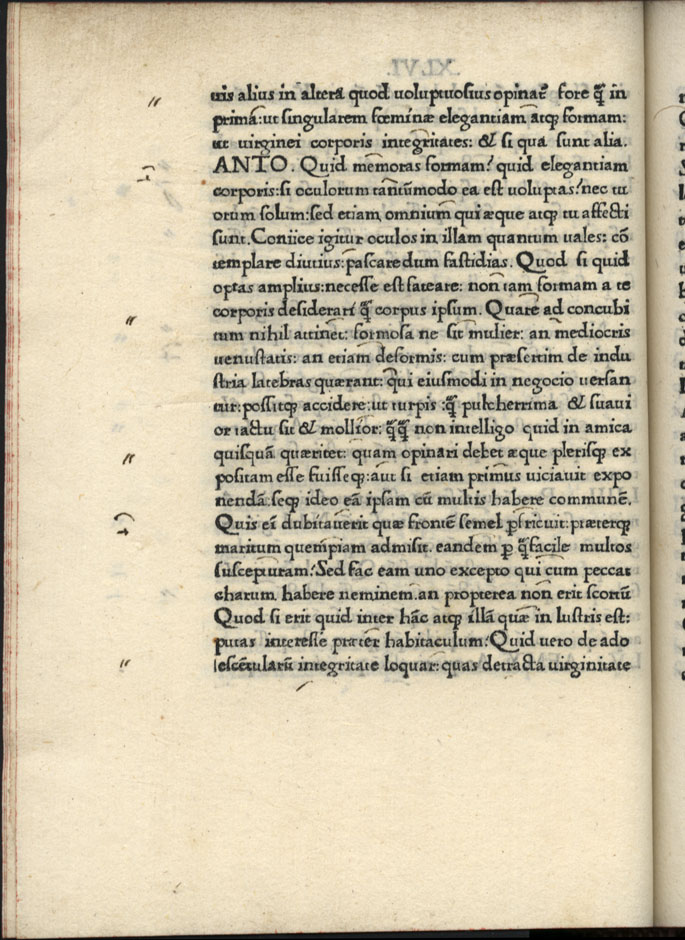 tris alius in alterā quod voluptuosius opinaṫ? fore q̄̄ in
primā: ut singularem fœminæ elegantiam atq; formam:
ut virginei corporis integritates: & si qua sunt alia.
ANTO. Quid memoras formam? quid elegantiam
corporis: si oculorum tantūmodo ea est voluptas? nec tu
orum solum: sed etiam omnium qui æque atq; tu affecti
sunt. Coniice igitur oculos in illam quantum uales: cō
templare diutius: pascare dum fastidias. Quod si quid
optas amplius: necesse est fateare: non tam formam a te
corporis desiderari q̄̄ corpus ipsum. Quare ad concubi
tum nihil attinet: formosa ne sit mulier: an mediocris
uenustatis: an etiam deformis: cum præsertim de indu
stria latebras quærant: qui eiusmodi in negocio uersan
tur: possitq; accidere: ut turpis :q̄̄ pulcherrima & suaui
or tactu sit & mollior: q̄̄q̄̄ non intelligo quid in amica
quisquā quæritet: quam opinari debet æque plerisq; ex
positam esse fuisseq;: aut si etiam primus uiciauit expo
nendā: seq; ideo eā ipsam cū multis habere communē.
Quis eī dubitauerit quæ frontē semel ꝑfricuit: præterq;
maritum quempiam admisit. eandem ꝑ q̄̄facile multos
suscepturam? Sed fac eam uno excepto qui cum peccat
charum habere neminem. an propterea non erit scortū
Quod si erit quid inter hāc atq; illā quæ in lustris est:
putas interesse præter habitaculum? Quid uero de ado
lescētularū integritate loquar: quas detracta uirginitate